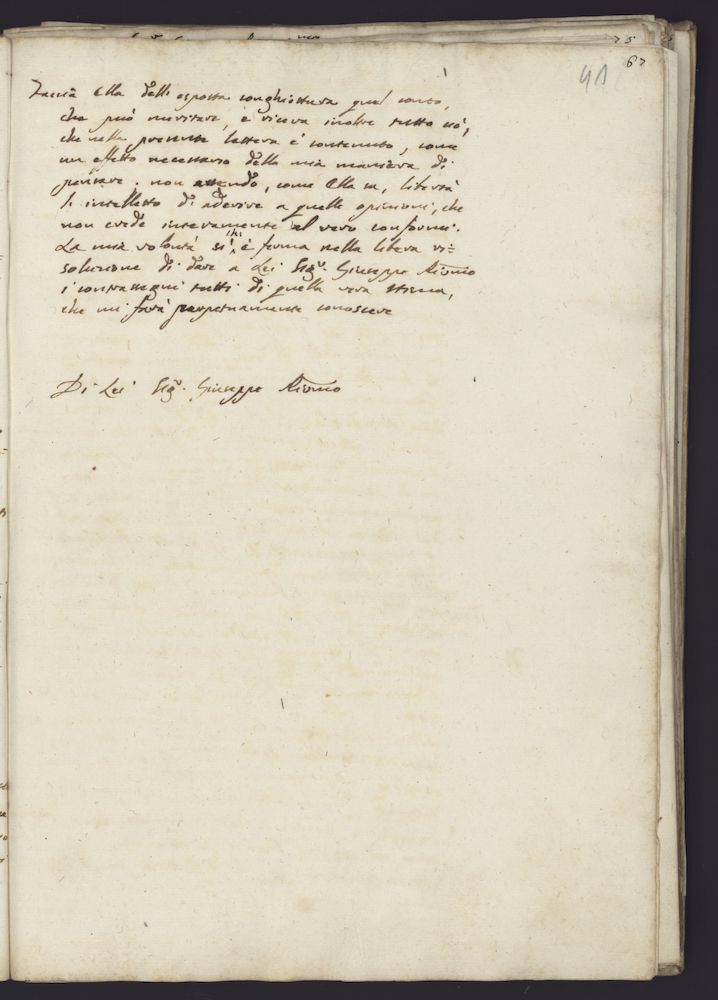 41
67
Faccia Ella dell' esposta conghiettura quel conto,
che può meritare, e riceva inoltre tutto ciò,
che nella presente lettera è contenuto, come
un effetto necessario della mia maniera di
pensare. non avendo, come Ella sa, libertà
l' intelletto di aderire a quelle opinioni, che
non crede interamente al vero conformi.
La mia volontà sì è ferma nella libera ri=
soluzione di dare a Lei Sigr. Giuseppe
i contrassegni tutti di quella vera stima,
che mi farà perpetuamente conoscere
Di Lei Sigr. Giuseppe